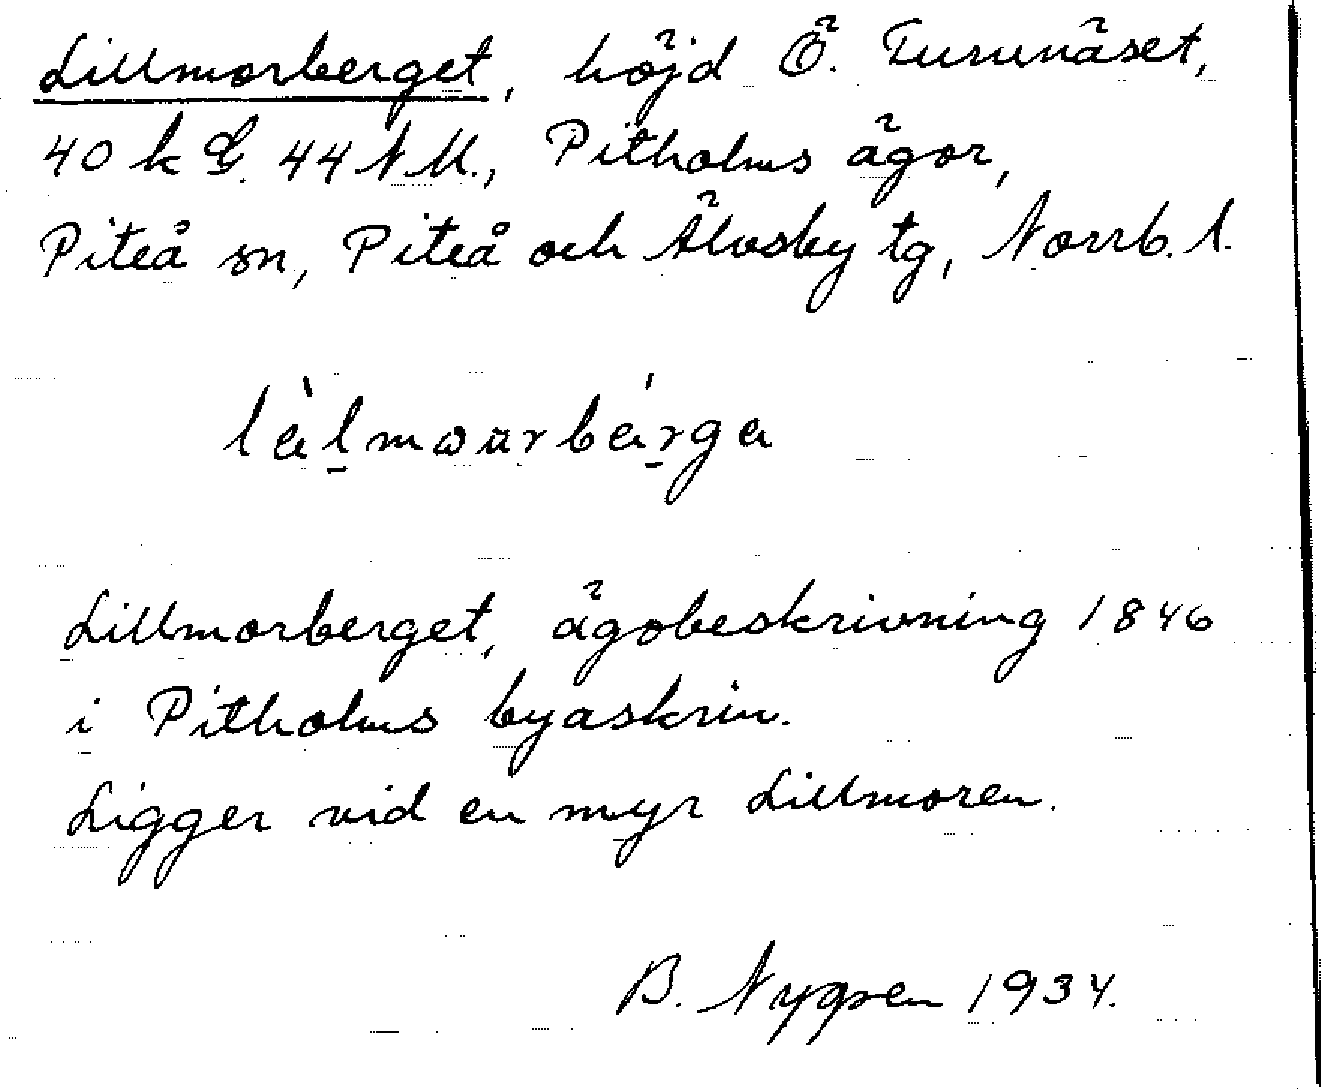 Lillmorberget, höjd Ö. Turunäset,
40 k G. 44 NM., Pitholms ägor,
Piteå sn, Piteå och Älvsby tg, Norrb. l.
Lillmorberget, ägobeskrivning 1846
i Pitholms byaskrin.
Ligger vid en myr Lillmoren.
B. Nygren 1934.